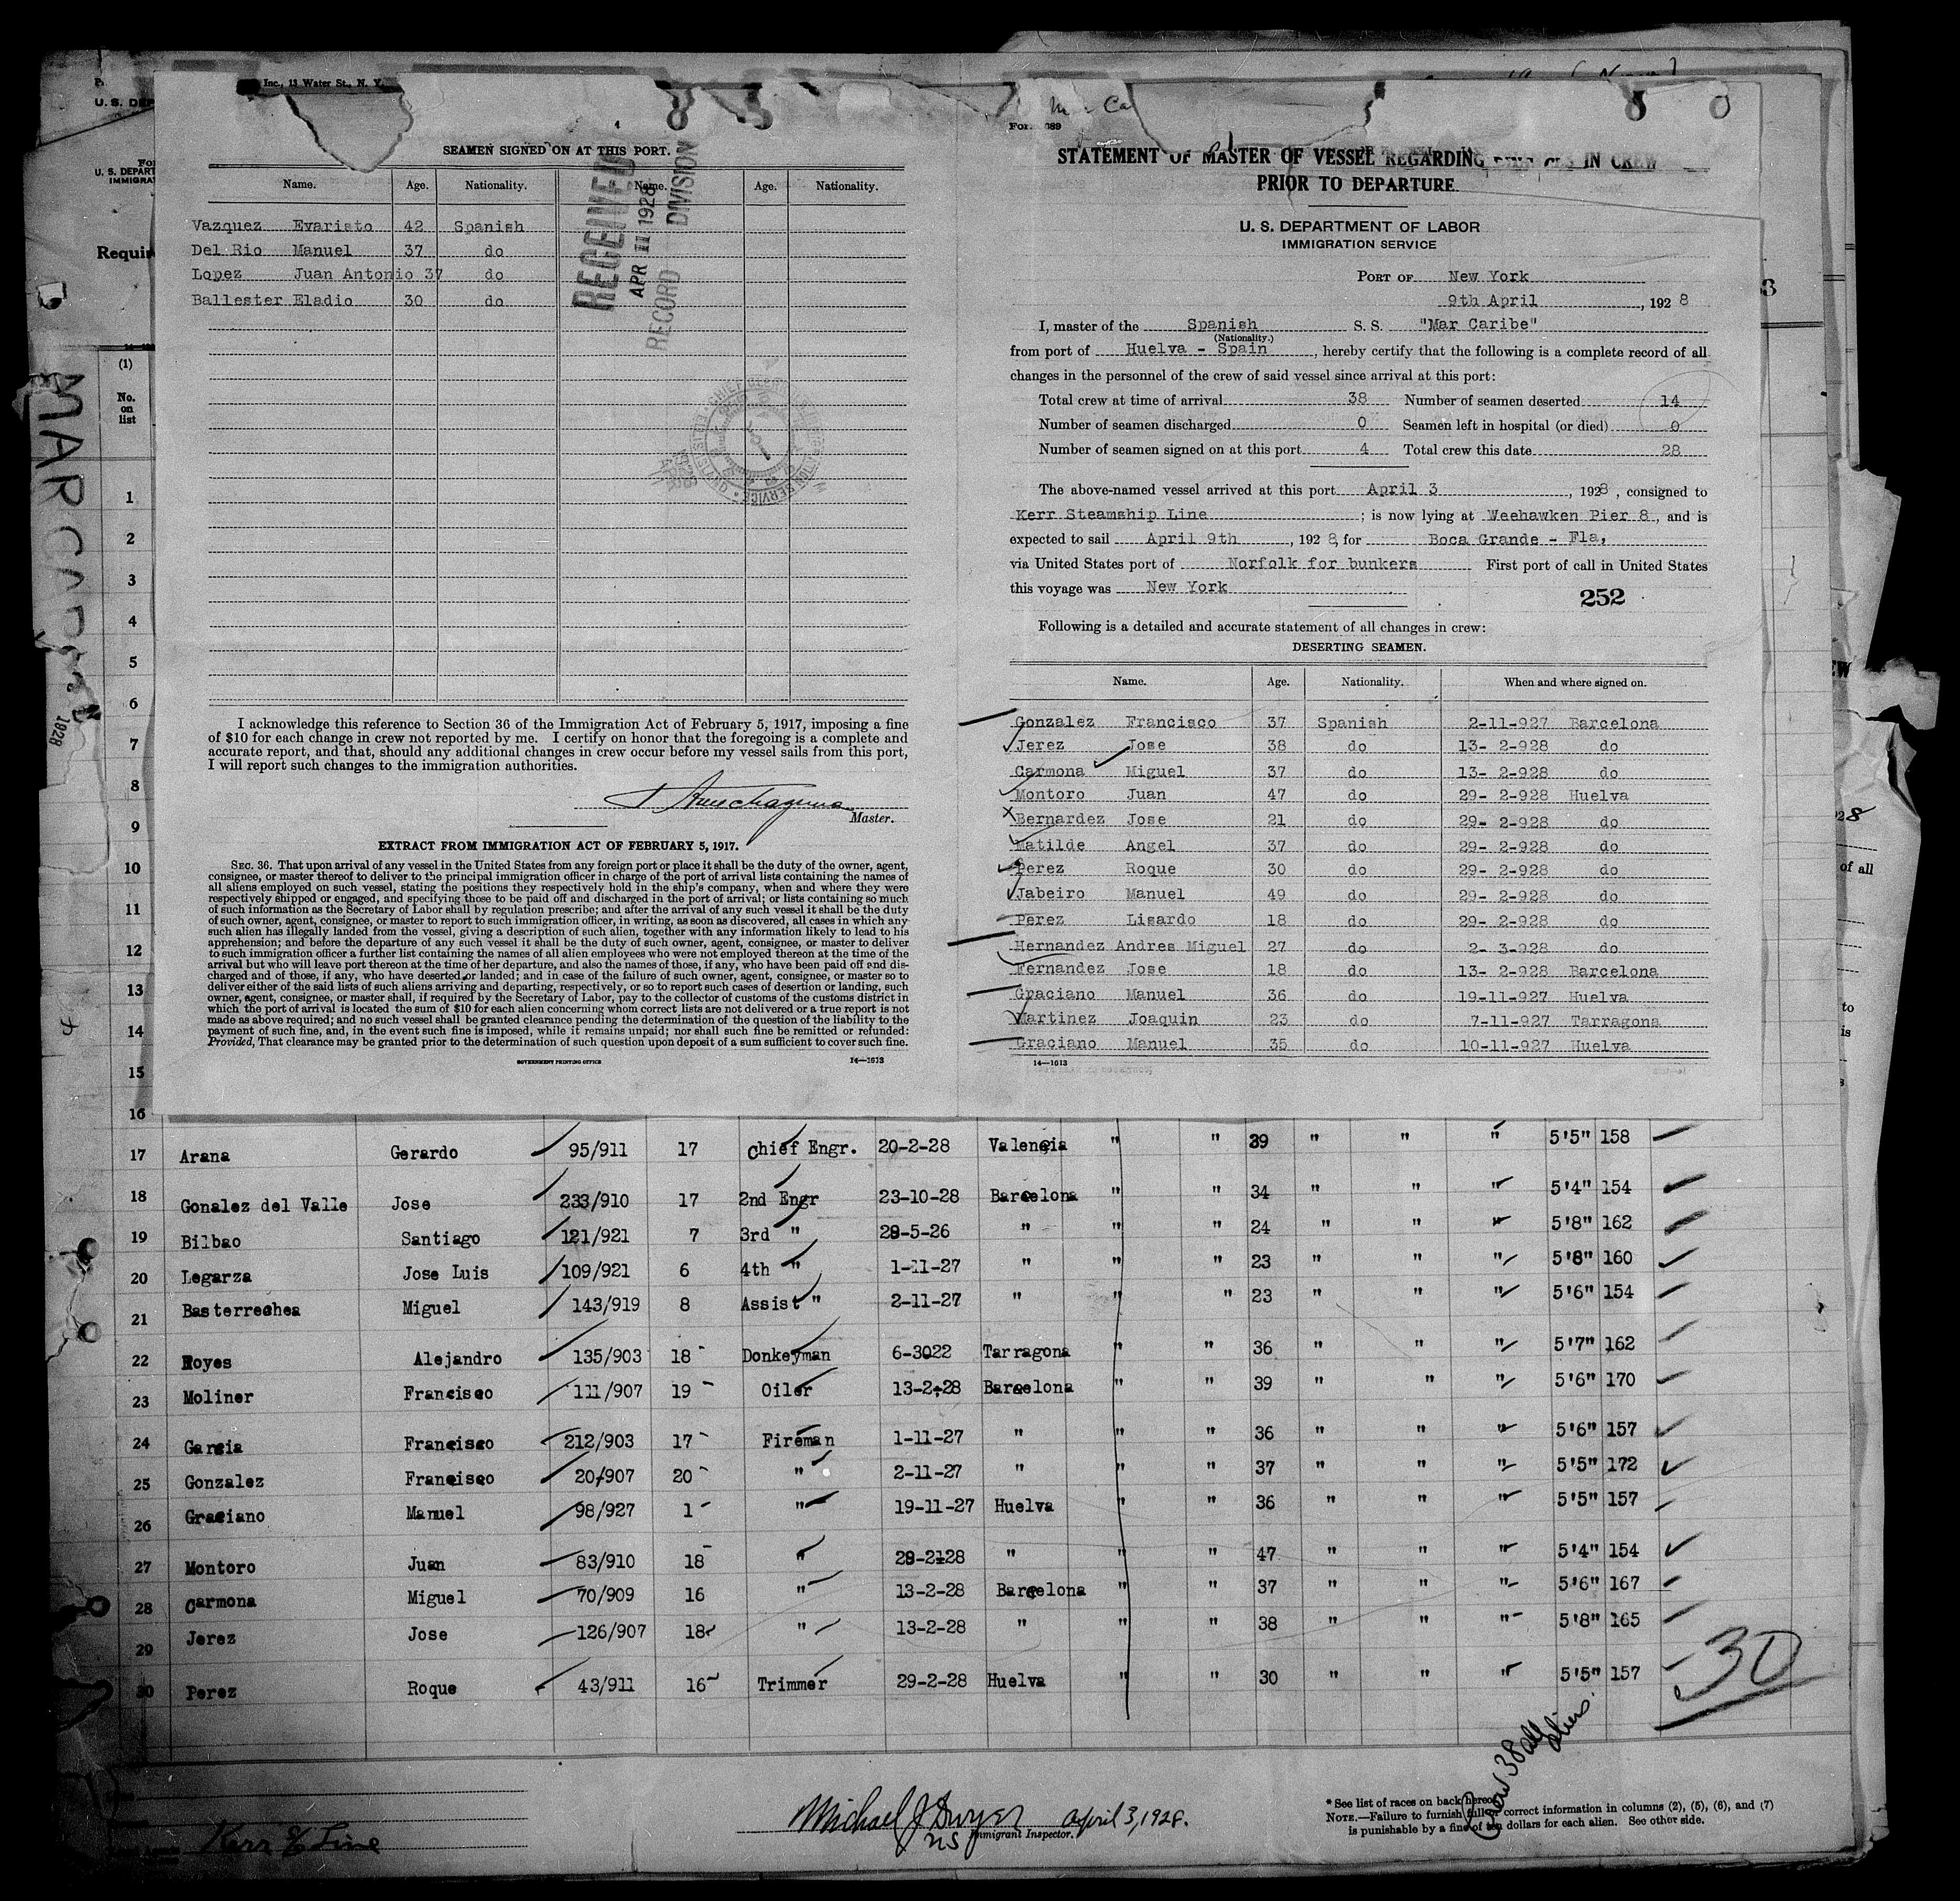 Inc., 13 Water St., N. Y.
SEAMEN SIGNED ON AT THIS PORT.
Name. Age. Nationality. Name. Age. Nationality.
Vazquez Evaristo 42 Spanish
Del Rio Manuel 37 do
Lopez Juan Antonio 37 do
Ballester Eladio 30 do
RECEIVED
APR 11 1928
RECORD DIVISION
I acknowledge this reference to Section 36 of the Immigration Act of February 5, 1917, imposing a fine
of $10 for each change in crew not reported by me. I certify on honor that the foregoing is a complete and
accurate report, and that, should any additional changes in crew occur before my vessel sails from this port,
I will report such changes to the immigration authorities.
Master.
EXTRACT FROM IMMIGRATION ACT OF FEBRUARY 5, 1917.
SEC. 36. That upon arrival of any vessel in the United States from any foreign port or place it shall be the duty of the owner, agent,
consignee, or master thereof to deliver to the principal immigration officer in charge of the port of arrival lists containing the names of
all aliens employed on such vessel, stating the positions they respectively hold in the ship's company, when and where they were
respectively shipped or engaged, and specifying those to be paid off and discharged in the port of arrival; or lists containing so much
of such information as the Secretary of Labor shall by regulation prescribe; and after the arrival of any such vessel it shall be the duty
of such owner, agent, consignee, or master to report to such immigration officer, in writing, as soon as discovered, all cases in which any
such alien has illegally landed from the vessel, giving a description of such alien, together with any information likely to lead to his
apprehension; and before the departure of any such vessel it shall be the duty of such owner, agent, consignee, or master to deliver
to such immigration officer a further list containing the names of all alien employees who were not employed thereon at the time of the
arrival but who will leave port thereon at the time of her departure, and also the names of those, if any, who have been paid off and dis-
charged and of those, if any, who have deserted or landed; and in case of the failure of such owner, agent, consignee, or master so to
deliver either of the said lists of such aliens arriving and departing, respectively, or so to report such cases of desertion or landing, such
owner, agent, consignee, or master shall, if required by the Secretary of Labor, pay to the collector of customs of the customs district in
which the port of arrival is located the sum of $10 for each alien concerning whom correct lists are not delivered or a true report is not
made as above required; and no such vessel shall be granted clearance pending the determination of the question of the liability to the
payment of such fine, and, in the event such fine is imposed, while it remains unpaid; nor shall such fine be remitted or refunded:
Provided, That clearance may be granted prior to the determination of such question upon deposit of a sum sufficient to cover such fine.
GOVERNMENT PRINTING OFFICE 14—1613
STATEMENT OF MASTER OF VESSEL REGARDING IN CREW
PRIOR TO DEPARTURE
U. S. DEPARTMENT OF LABOR
IMMIGRATION SERVICE
PORT OF New York
9th April, 1928
I, master of the Spanish S. S. "Mar Caribe"
(Nationality.)
from port of Huelva - Spain, hereby certify that the following is a complete record of all
changes in the personnel of the crew of said vessel since arrival at this port:
Total crew at time of arrival 38 Number of seamen deserted 14
Number of seamen discharged 0 Seamen left in hospital (or died) 0
Number of seamen signed on at this port 4 Total crew this date 28
The above-named vessel arrived at this port April 3, 1928, consigned to
Kerr Steamship Line; is now lying at Weehawken Pier 8, and is
expected to sail April 9th, 1928, for Boca Grande - Fla,
via United States port of Norfolk for bunkers First port of call in United States
this voyage was New York
252
Following is a detailed and accurate statement of all changes in crew:
DESERTING SEAMEN.
Name. Age. Nationality. When and where signed on.
Gonzalez Francisco 37 Spanish 2-11-927 Barcelona
Jerez Jose 38 do 13- 2-928 do
Carmona Miguel 37 do 13- 2-928 do
Montoro Juan 47 do 29- 2-928 Huelva
Bernardez Jose 21 do 29- 2-928 do
Matilde Angel 37 do 29- 2-928 do
Perez Roque 30 do 29- 2-928 do
Jabeiro Manuel 49 do 29- 2-928 do
Perez Lisardo 18 do 29- 2-928 do
Hernandez Andres Miguel 27 do 2- 3-928 do
Fernandez Jose 18 do 13- 2-928 Barcelona
Graciano Manuel 36 do 19-11-927 Huelva
Martinez Joaquin 23 do 7-11-927 Tarragona
Graciano Manuel 35 do 10-11-927 Huelva
14—1613
MAR CARIBE
1928
(1)
No.
on
list
1
2
3
4
5
6
7
8
9
10
11
12
13
14
15
16
17 Arana Gerardo 95/911 17 Chief Engr. 20-2-28 Valencia " " 39 " " " 5'5" 158
18 Gonalez del Valle Jose 233/910 17 2nd Engr 23-10-28 Barcelona " " 34 " " " 5'4" 154
19 Bilbao Santiago 121/921 7 3rd " 29-5-26 " " " 24 " " " 5'8" 162
20 Legarza Jose Luis 109/921 6 4th " 1-11-27 " " " 23 " " " 5'8" 160
21 Basterrechea Miguel 143/919 8 Assist " 2-11-27 " " " 23 " " " 5'6" 154
22 Royes Alejandro 135/903 18 Donkeyman 6-3022 Tarragona " " 36 " " " 5'7" 162
23 Moliner Francisco 111/907 19 Oiler 13-2-28 Barcelona " " 39 " " " 5'6" 170
24 Garcia Francisco 212/903 17 Fireman 1-11-27 " " " 36 " " " 5'6" 157
25 Gonzalez Francisco 20/907 20 " 2-11-27 " " " 37 " " " 5'5" 172
26 Graciano Manuel 98/927 1 " 19-11-27 Huelva " " 36 " " " 5'5" 157
27 Montoro Juan 83/910 18 " 29-2-28 " " " 47 " " " 5'4" 154
28 Carmona Miguel 70/909 16 " 13-2-28 Barcelona " " 37 " " " 5'6" 167
29 Jerez Jose 126/907 18 " 13-2-28 " " " 38 " " " 5'8" 165
30 Perez Roque 43/911 16 Trimmer 29-2-28 Huelva " " 30 " " " 5'5" 157
30
Crew 38 all aliens
Kerr SS Line
Michael J Dwyer April 3, 1928.
Immigrant Inspector.
* See list of races on back hereof.
NOTE.—Failure to furnish full or correct information in columns (2), (5), (6), and (7)
is punishable by a fine of ten dollars for each alien. See other side.